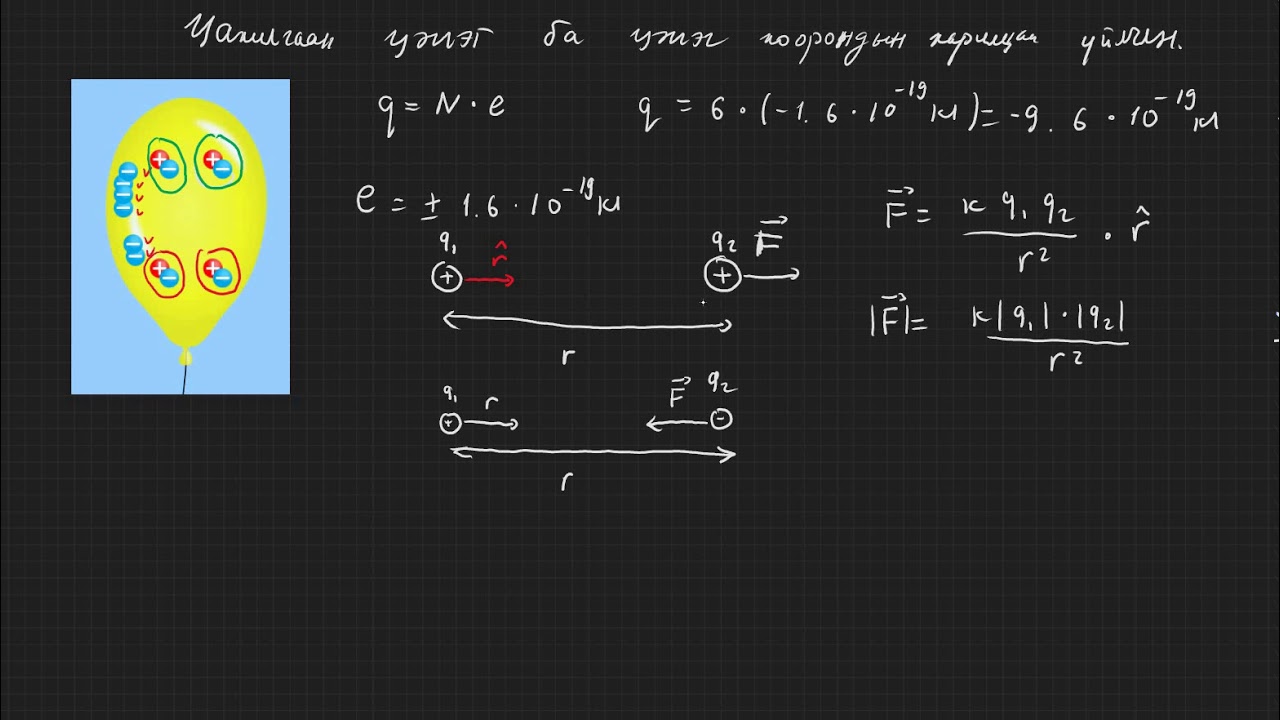 Цахилгаан цэнэг ба цэнэг хоорондын харилцан үйлчил.
q = N · e
q = 6 · (-1.6 · 10⁻¹⁹ Кл) = -9.6 · 10⁻¹⁹ Кл
e = ± 1.6 · 10⁻¹⁹ Кл
F⃗ = k q₁ q₂ / r² · r̂
q₁ r̂ q₂ F⃗
+ +
r
|F⃗| = k|q₁| · |q₂| / r²
q₁ r F⃗ q₂
+ -
r